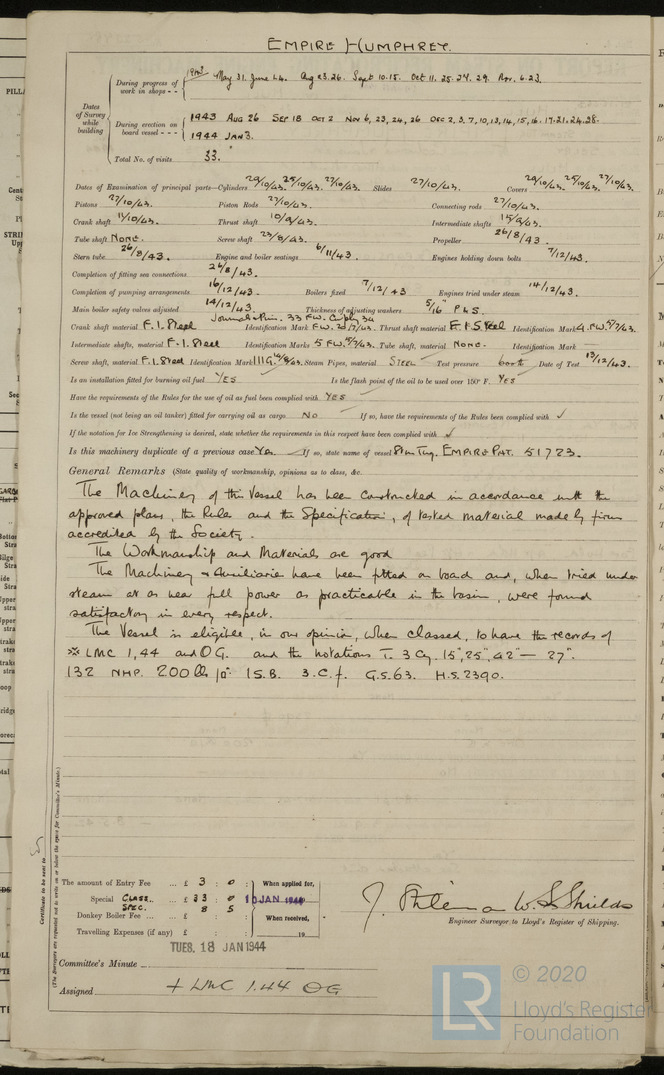 EMPIRE HUMPHREY.
Dates of Survey while building
During progress of work in shops - - 1943 May 31. June 4. Aug 23.26. Sept 10.15. Oct 11. 25.27.29. Nov. 6.23.
During erection on board vessel - - - 1943 AUG 26 SEP 18 OCT 2 NOV 6, 23, 24, 26 DEC 2, 3, 7, 10, 13, 14, 15, 16. 17.21.24.28.
1944 JAN 3.
Total No. of visits 33.
Dates of Examination of principal parts—Cylinders 20/10/43. 25/10/43. 27/10/43. Slides 27/10/43. Covers 20/10/43. 25/10/43. 27/10/43.
Pistons 27/10/43. Piston Rods 27/10/43. Connecting rods 27/10/43.
Crank shaft 11/10/43. Thrust shaft 10/9/43. Intermediate shafts 15/9/43.
Tube shaft NONE. Screw shaft 23/8/43. Propeller 26/8/43.
Stern tube 26/8/43. Engine and boiler seatings 6/11/43. Engines holding down bolts 7/12/43.
Completion of fitting sea connections 26/8/43.
Completion of pumping arrangements 16/12/43. Boilers fixed 7/12/43 Engines tried under steam 14/12/43.
Main boiler safety valves adjusted 14/12/43. Thickness of adjusting washers 5/16" P & S.
Crank shaft material F.I. Steel Identification Mark Thrust shaft material F.I Steel Identification Mark
Intermediate shafts, material F.I. Steel Identification Marks Tube shaft, material NONE. Identification Mark —
Screw shaft, material F.I. Steel Identification Mark Steam Pipes, material STEEL Test pressure 600 Date of Test 13/12/43.
Is an installation fitted for burning oil fuel YES Is the flash point of the oil to be used over 150° F. YES
Have the requirements of the Rules for the use of oil as fuel been complied with YES
Is the vessel (not being an oil tanker) fitted for carrying oil as cargo NO If so, have the requirements of the Rules been complied with ✓
If the notation for Ice Strengthening is desired, state whether the requirements in this respect have been complied with ✓
Is this machinery duplicate of a previous case Yes If so, state name of vessel Stm Tug. EMPIRE PAT. 51723.
General Remarks (State quality of workmanship, opinions as to class, &c.
The Machinery of this Vessel has been constructed in accordance with the
approved plans, the Rules and the Specification, of tested material made by firms
accredited by the Society.
The Workmanship and Materials are good
The Machinery & Auxiliaries have been fitted on board and, when tried under
steam at as near full power as practicable in the basin, were found
satisfactory in every respect.
The Vessel is eligible, in our opinion, when classed, to have the records of
※ LMC 1,44 and OG. and the notations T. 3 Cy. 15", 25", 42" — 27".
132 NHP. 200 lb 1S.B. 3.C.f. G.S.63. H.S.2390.
Certificate to be sent to
(The Surveyors are requested not to write on or below the space for Committee's Minute.)
The amount of Entry Fee ... £ 3 : 0 : When applied for,
Special CLASS. ... £ 33 : 0 10 JAN 1944
SPEC. 8 5
Donkey Boiler Fee ... £ : : When received,
Travelling Expenses (if any) £ : : 19
TUES. 18 JAN 1944
W. S. Shields
Engineer Surveyor to Lloyd's Register of Shipping.
Committee's Minute
Assigned + LMC 1.44 OG
LR © 2020
Lloyd's Register
Foundation